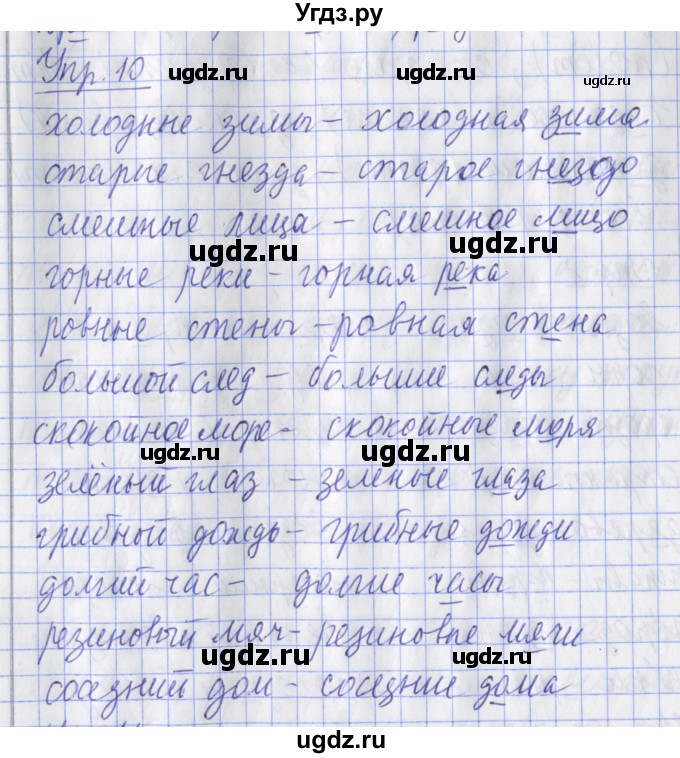 Угдз.ру
Упр. 10
ugdz.ru ugdz.ru ugdz.ru
холодные зимы – холодная зима
старые гнезда – старое гнездо
смешные лица – смешное лицо
ugdz.ru ugdz.ru
горные реки – горная река
ровные стены – ровная стена
ugdz.ru ugdz.ru
большой след – большие следы
скокойное море – скокойные моря
ugdz.ru ugdz.ru
зелёный глаз – зеленые глаза
грибной дождь – грибные дожди
ugdz.ru ugdz.ru
долгий час – долгие часы
резиновый мяч – резиновые мячи
ugdz.ru ugdz.ru
соседний дом – соседние дома
ugdz.ru